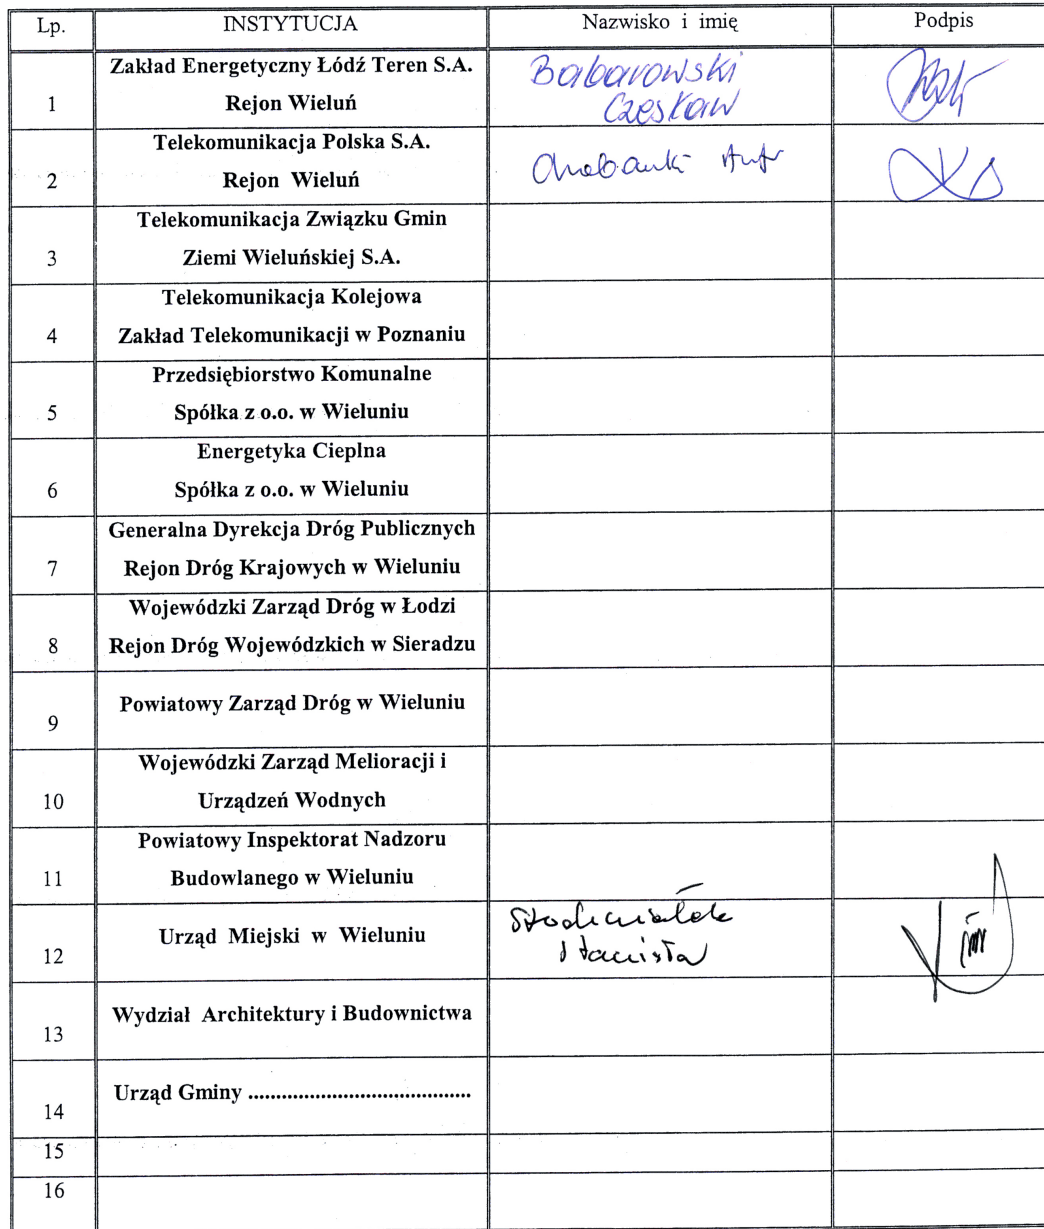 Lp. INSTYTUCJA Nazwisko i imię Podpis
Zakład Energetyczny Łódź Teren S.A. Babarowski
1 Rejon Wieluń Czesław
Telekomunikacja Polska S.A.
2 Rejon Wieluń
Telekomunikacja Związku Gmin
3 Ziemi Wieluńskiej S.A.
Telekomunikacja Kolejowa
4 Zakład Telekomunikacji w Poznaniu
Przedsiębiorstwo Komunalne
5 Spółka z o.o. w Wieluniu
Energetyka Cieplna
6 Spółka z o.o. w Wieluniu
Generalna Dyrekcja Dróg Publicznych
7 Rejon Dróg Krajowych w Wieluniu
Wojewódzki Zarząd Dróg w Łodzi
8 Rejon Dróg Wojewódzkich w Sieradzu
Powiatowy Zarząd Dróg w Wieluniu
9
Wojewódzki Zarząd Melioracji i
10 Urządzeń Wodnych
Powiatowy Inspektorat Nadzoru
11 Budowlanego w Wieluniu
Urząd Miejski w Wieluniu
12
Wydział Architektury i Budownictwa
13
Urząd Gminy ........................................
14
15
16